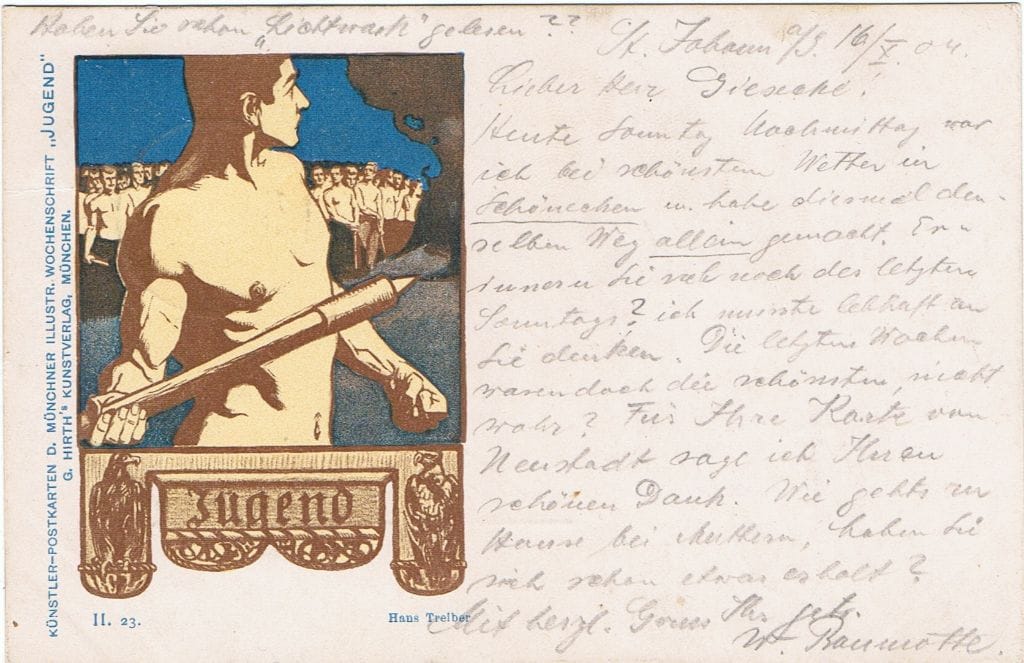 Haben Sie schon „Lichtwark“ gelesen??
St. Johann a/S 16/X. 04.
Lieber Herr Giesecke!
Heute Sonntag Nachmittag war
ich bei schönstem Wetter in
Schöneichen u. habe diesmal den-
selben Weg allein gemacht. Er-
innern Sie sich noch des letzten
Sonntags? ich musste lebhaft an
Sie denken. Die letzten Wochen
waren doch die schönsten, nicht
wahr? Für Ihre Karte von
Neustadt sage ich Ihnen
schönen Dank. Wie gehts zu
Hause bei Muttern, haben Sie
sich schon etwas erholt?
Mit herzl. Gruss Ihr getr.
W. Baumotte.
KÜNSTLER-POSTKARTEN D. MÜNCHNER ILLUSTR. WOCHENSCHRIFT „JUGEND“
G. HIRTH's KUNSTVERLAG, MÜNCHEN.
Jugend
II. 23.
Hans Treiber